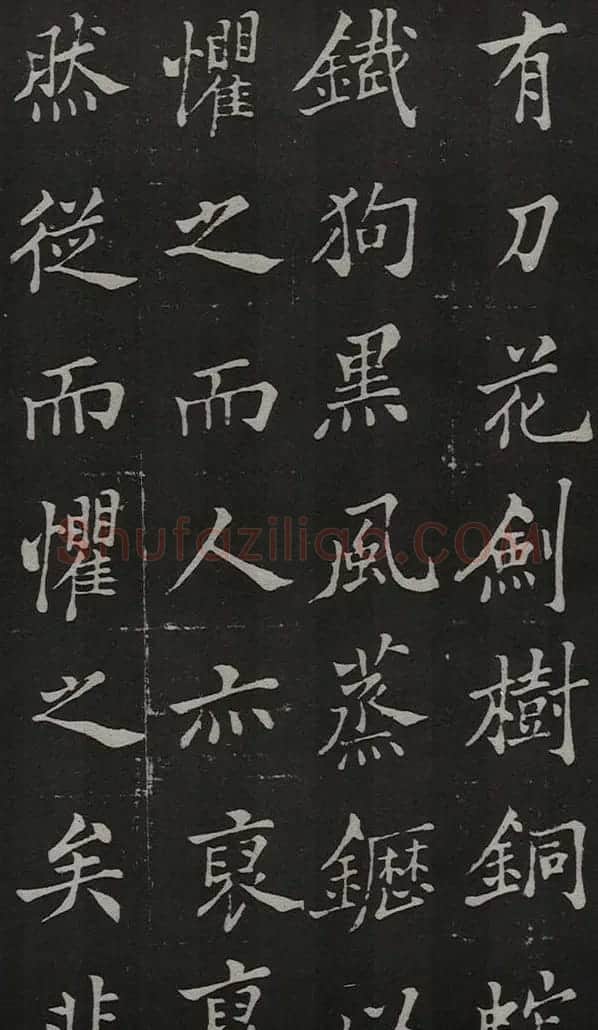 有刀花劍樹銅蛇
鐵狗黑風蒸鑩以
懼之而人亦裒裒
然從而懼之矣非
shufaziliao.com